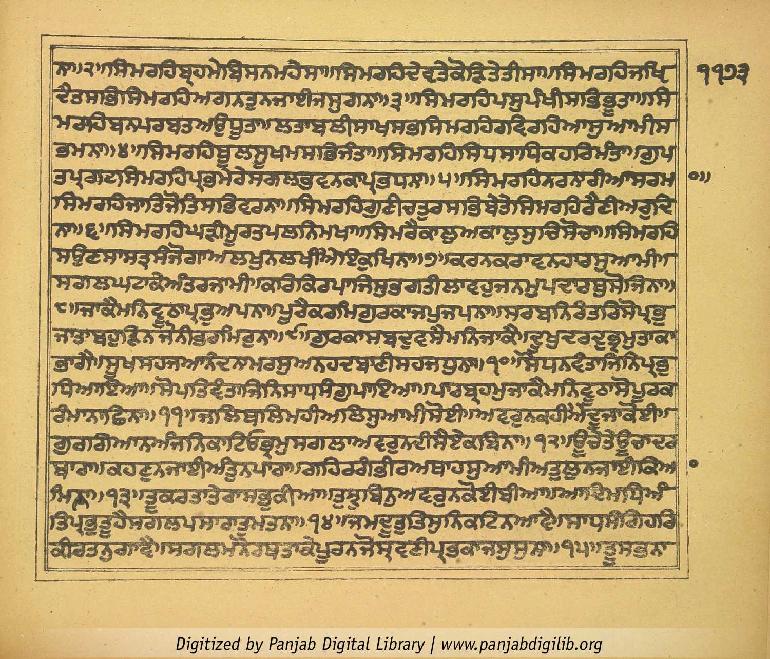 ਨਾ॥੨॥ਸਿਮਰਹਿਬ੍ਰਹਮੇਬਿਸਨਮਹੇਸਾ॥ਸਿਮਰਹਿਦੇਵਤੇਕੋੜਿਤੇਤੀਸਾ॥ਸਿਮਰਹਿਜਖਿ
ਦੈਤਸਭਿਸਿਮਰਹਿਅਗਨਤੁਨਜਾਈਜਸੁਗਨਾ॥੩॥ਸਿਮਰਹਿਪਸੁਪੰਖੀਸਭਿਭੂਤਾ॥ਸਿ
ਮਰਹਿਬਨਪਰਬਤਅਉਧੂਤਾ॥ਲਤਾਬਲੀਸਾਖਸਭਸਿਮਰਹਿਰਵਿਰਹਿਆਸੁਆਮੀਸ
ਭਮਨਾ॥੪॥ਸਿਮਰਹਿਥੂਲਸੂਖਮਸਭਿਜੰਤਾ॥ਸਿਮਰਹਿਸਿਧਸਾਧਿਕਹਰਿਮੰਤਾ॥ਗੁਪ
ਤਪ੍ਰਗਟਸਿਮਰਹਿਪ੍ਰਭਮੇਰੇਸਗਲਭਵਨਕਾਪ੍ਰਭਧਨਾ॥੫॥ਸਿਮਰਹਿਨਰਨਾਰੀਆਸਰਮ
ਸਿਮਰਹਿਜਾਤਿਜੋਤਿਸਭਿਵਰਨਾ॥ਸਿਮਰਹਿਗੁਣੀਚਤੁਰਸਭਿਬੇਤੇਸਿਮਰਹਿਰੈਣੀਅਰੁਦਿ
ਨਾ॥੬॥ਸਿਮਰਹਿਘੜੀਮੂਰਤਪਲਨਿਮਖਾ॥ਸਿਮਰੈਕਾਲੁਅਕਾਲੁਸੁਚਿਸੋਚਾ॥ਸਿਮਰਹਿ
ਸਉਣਸਾਸਤ੍ਰਸੰਜੋਗਾਅਲਖੁਨਲਖੀਐਇਕੁਖਿਨਾ॥੭॥ਕਰਨਕਰਾਵਨਹਾਰਸੁਆਮੀ॥
ਸਗਲਘਟਾਕੇਅੰਤਰਜਾਮੀ॥ਕਰਿਕਿਰਪਾਜਿਸੁਭਗਤੀਲਾਵਹੁਜਨਮੁਪਦਾਰਥੁਸੋਜਿਨਾ॥
੮॥ਜਾਕੈਮਨਿਵੂਠਾਪ੍ਰਭੁਅਪਨਾ॥ਪੂਰੈਕਰਮਿਗੁਰਕਾਜਪੁਜਪਨਾ॥ਸਰਬਨਿਰੰਤਰਿਸੋਪ੍ਰਭੁ
ਜਾਤਾਬਹੁੜਿਨਜੋਨੀਭਰਮਿਰੁਨਾ॥੯॥ਗੁਰਕਾਸਬਦੁਵਸੈਮਨਿਜਾਕੈ॥ਦੂਖੁਦਰਦੁਭ੍ਰਮੁਤਾਕਾ
ਭਾਗੈ॥ਸੂਖਸਹਜਆਨੰਦਨਾਮਰਸੁਅਨਹਦਬਾਣੀਸਹਜਧੁਨਾ॥੧੦॥ਸੋਧਨਵੰਤਾਜਿਨਿਪ੍ਰਭੁ
ਧਿਆਇਆ॥ਸੋਪਤਿਵੰਤਾਜਿਨਿਸਾਧਸੰਗੁਪਾਇਆ॥ਪਾਰਬ੍ਰਹਮੁਜਾਕੈਮਨਿਵੂਠਾਸੋਪੂਰਕ
ਰੰਮਾਨਾਛਿਨਾ॥੧੧॥ਜਲਿਥਲਿਮਹੀਅਲਿਸੁਆਮੀਸੋਈ॥ਅਵਰੁਨਕਹੀਐਦੂਜਾਕੋਈ॥
ਗੁਰਗਿਆਨਅੰਜਨਿਕਾਟਿਓਭ੍ਰਮੁਸਗਲਾਅਵਰੁਨਦੀਸੈਏਕਬਿਨਾ॥੧੨॥ਊਚੇਤੇਊਚਾਦਰ
ਬਾਰਾ॥ਕਹਣੁਨਜਾਈਅੰਤੁਨਪਾਰਾ॥ਗਹਿਰਗੰਭੀਰਅਥਾਹਸੁਆਮੀਅਤੁਲੁਨਜਾਈਕਿਆ
ਮਿਨਾ॥੧੩॥ਤੂਕਰਤਾਤੇਰਾਸਭੁਕੀਆ॥ਤੁਝੁਬਿਨੁਅਵਰੁਨਕੋਈਬੀਆ॥ਆਦਿਮਧਿਅੰ
ਤਿਪ੍ਰਭੁਤੂਹੈਸਗਲਪਸਾਰਾਤੁਮਤਨਾ॥੧੪॥ਜਮਦੂਤੁਤਿਸੁਨਿਕਟਿਨਆਵੈ॥ਸਾਧਸੰਗਿਹਰਿ
ਕੀਰਤਨੁਗਾਵੈ॥ਸਗਲਮਨੋਰਥਤਾਕੇਪੂਰਨਜੋਸ੍ਰਵਣੀਪ੍ਰਭਕਾਜਸੁਸੁਨਾ॥੧੫॥ਤੂਸਭਨਾ
੧੧੭੩
Digitized by Panjab Digital Library | www.panjabdigilib.org